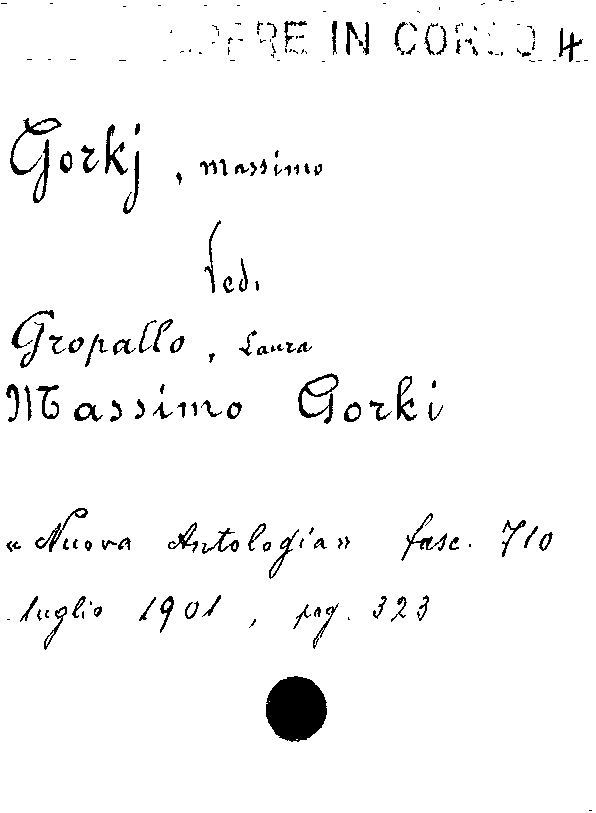 OPERE IN CORSO 4
Gorkj, Massimo
Vedi
Gropallo, Laura
Massimo Gorki
« Nuova Antologia » fasc. 710
luglio 1901, pag. 323